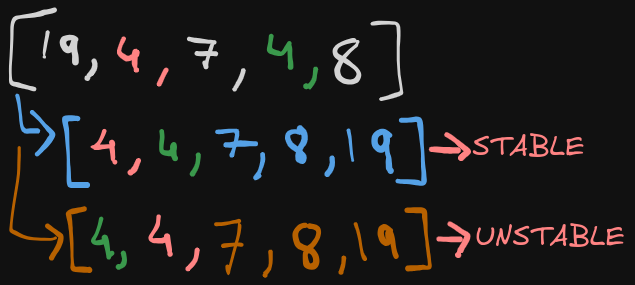 [19, 4, 7, 4, 8]
[4, 4, 7, 8, 19] → STABLE
[4, 4, 7, 8, 19] → UNSTABLE